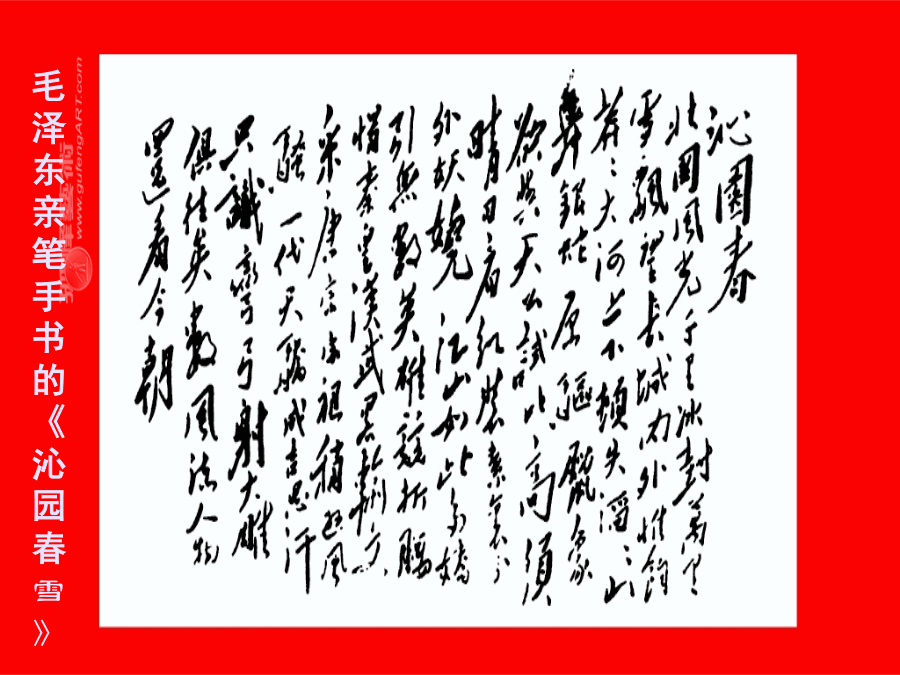 毛泽东亲笔手书的《沁园春雪》
www.gufengART.com
沁園春
北國風光千里冰封萬里
雪飄望長城內外惟餘
莽々大河上下頓失滔々山
舞銀蛇原驅臘象
欲與天公試比高須
晴日看紅裝素裹分
外妖嬈江山如此多嬌
引無數英雄競折腰
惜秦皇漢武略輸文
采唐宗宋祖稍遜風
騷一代天驕成吉思汗
只識彎弓射大雕
俱往矣數風流人物
還看今朝